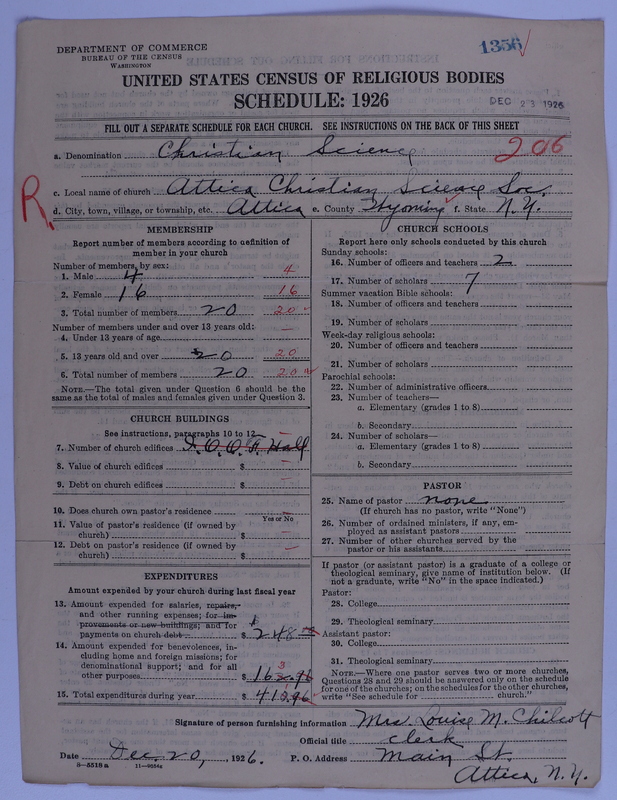 DEPARTMENT OF COMMERCE
BUREAU OF THE CENSUS
WASHINGTON
1356
UNITED STATES CENSUS OF RELIGIOUS BODIES
SCHEDULE: 1926
DEC 23 1926
FILL OUT A SEPARATE SCHEDULE FOR EACH CHURCH. SEE INSTRUCTIONS ON THE BACK OF THIS SHEET
a. Denomination Christian Science 206
c. Local name of church Attica Christian Science Soc.
R
d. City, town, village, or township, etc. Attica e. County Wyoming f. State N.Y.
MEMBERSHIP
Report number of members according to definition of
member in your church
Number of members, by sex:
1. Male 4 4
2. Female 16 16
3. Total number of members 20 20
Number of members under and over 13 years old:
4. Under 13 years of age —
5. 13 years old and over 20 20
6. Total number of members 20 20
NOTE.—The total given under Question 6 should be the
same as the total of males and females given under Question 3.
CHURCH BUILDINGS
See instructions, paragraphs 10 to 12
7. Number of church edifices I.O.O.F. Hall
8. Value of church edifices $ —
9. Debt on church edifices $ —
10. Does church own pastor's residence
Yes or No
11. Value of pastor's residence (if owned by
church) $ —
12. Debt on pastor's residence (if owned by
church) $ —
EXPENDITURES
Amount expended by your church during last fiscal year
13. Amount expended for salaries, repairs,
and other running expenses; for im-
provements or new buildings; and for
payments on church debt $ 248
14. Amount expended for benevolences, in-
cluding home and foreign missions; for
denominational support; and for all
other purposes $
15. Total expenditures during year $
CHURCH SCHOOLS
Report here only schools conducted by this church
Sunday schools:
16. Number of officers and teachers 2
17. Number of scholars 7
Summer vacation Bible schools:
18. Number of officers and teachers
19. Number of scholars
Week-day religious schools:
20. Number of officers and teachers
21. Number of scholars
Parochial schools:
22. Number of administrative officers
23. Number of teachers—
a. Elementary (grades 1 to 8)
b. Secondary
24. Number of scholars—
a. Elementary (grades 1 to 8)
b. Secondary
PASTOR
25. Name of pastor none
(If church has no pastor, write "None")
26. Number of ordained ministers, if any, em-
ployed as assistant pastors
27. Number of other churches served by the
pastor or his assistants
If pastor (or assistant pastor) is a graduate of a college or
theological seminary, give name of institution below. (If
not a graduate, write "No" in the space indicated.)
Pastor:
28. College
29. Theological seminary
Assistant pastor:
30. College
31. Theological seminary
NOTE.—Where one pastor serves two or more churches,
Questions 28 and 29 should be answered only on the schedule
for one of the churches; on the schedules for the other churches,
write "See schedule for church."
Signature of person furnishing information Mrs. Louise M. Chilcott
Official title clerk
Date Dec. 20, 1926. P. O. Address Main St.
8—5518 a Attica, N.Y.